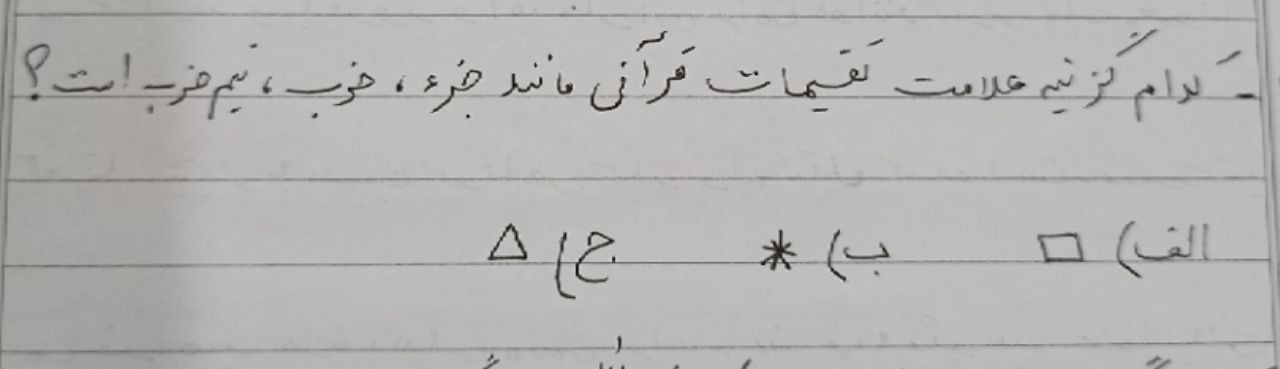 - کدام گزینه علامت تقسیمات قرآنی مانند جزء، حزب، نیم حزب است؟
الف) □ ب) * ج) △